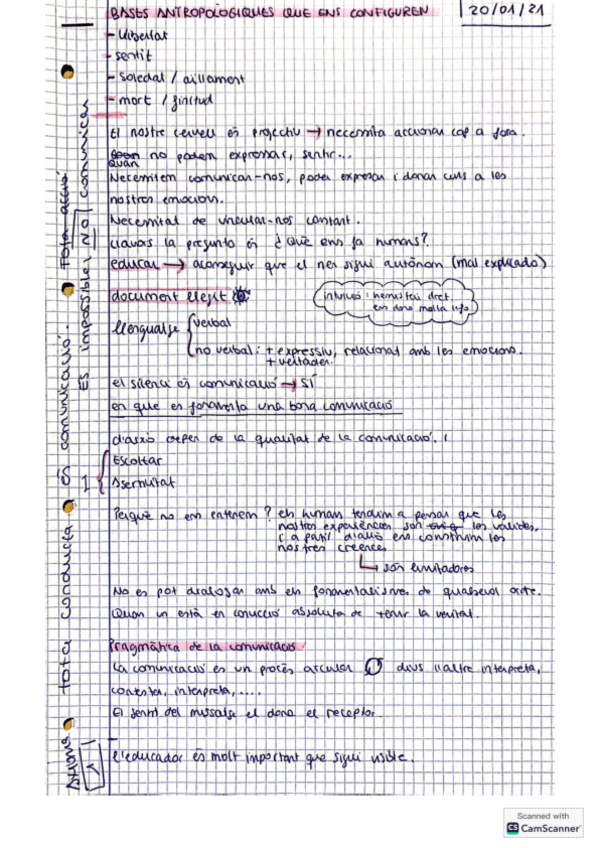 BASES ANTROPOLÒGIQUES QUE ENS CONFIGUREN
20/01/21
- llibertat
- sentit
- Soledat / aïllament
- mort / finitud
El nostre cervell és projectiu → necessita accionar cap a fora.
Quan no podem expressar, sentir...
Necessitem comunicar-nos, poder expresar i donar curs a les
nostres emocions.
Necessitat de vincular-nos constant.
llavors la pregunta és ¿Què ens fa humans?
educar → aconseguir que el nen sigui autònom (mal explicado)
document llegit
intuició: hemisferi dret
ens dona molta info
llenguatge
verbal
no verbal: + expressiu, relacionat amb les emocions.
+ vertader.
el silenci és comunicació → SÍ
en que es fonamenta una bona comunicació
depen de la qualitat de la comunicació.
Escoltar
Perquè no ens entenem? els humans tendim a pensar que les
nostres experiències son les valides,
i a partir d'això ens construim les
nostres creences
son limitadores
No es pot dialogar amb els fonamentalismes de qualsevol
Quan un està en convicció absoluta de tenir la veritat.
Pragmàtica de la comunicació
La comunicació és un procés circular dius l'altre interpreta,
contesta, interpreta,....
El sentit del missatge el dona el receptor.
l'educador és molt important que sigui visible.
tota conducta és comunicació.
tota acció
ÉS impossible NO comunicar
Scanned with
CS CamScanner